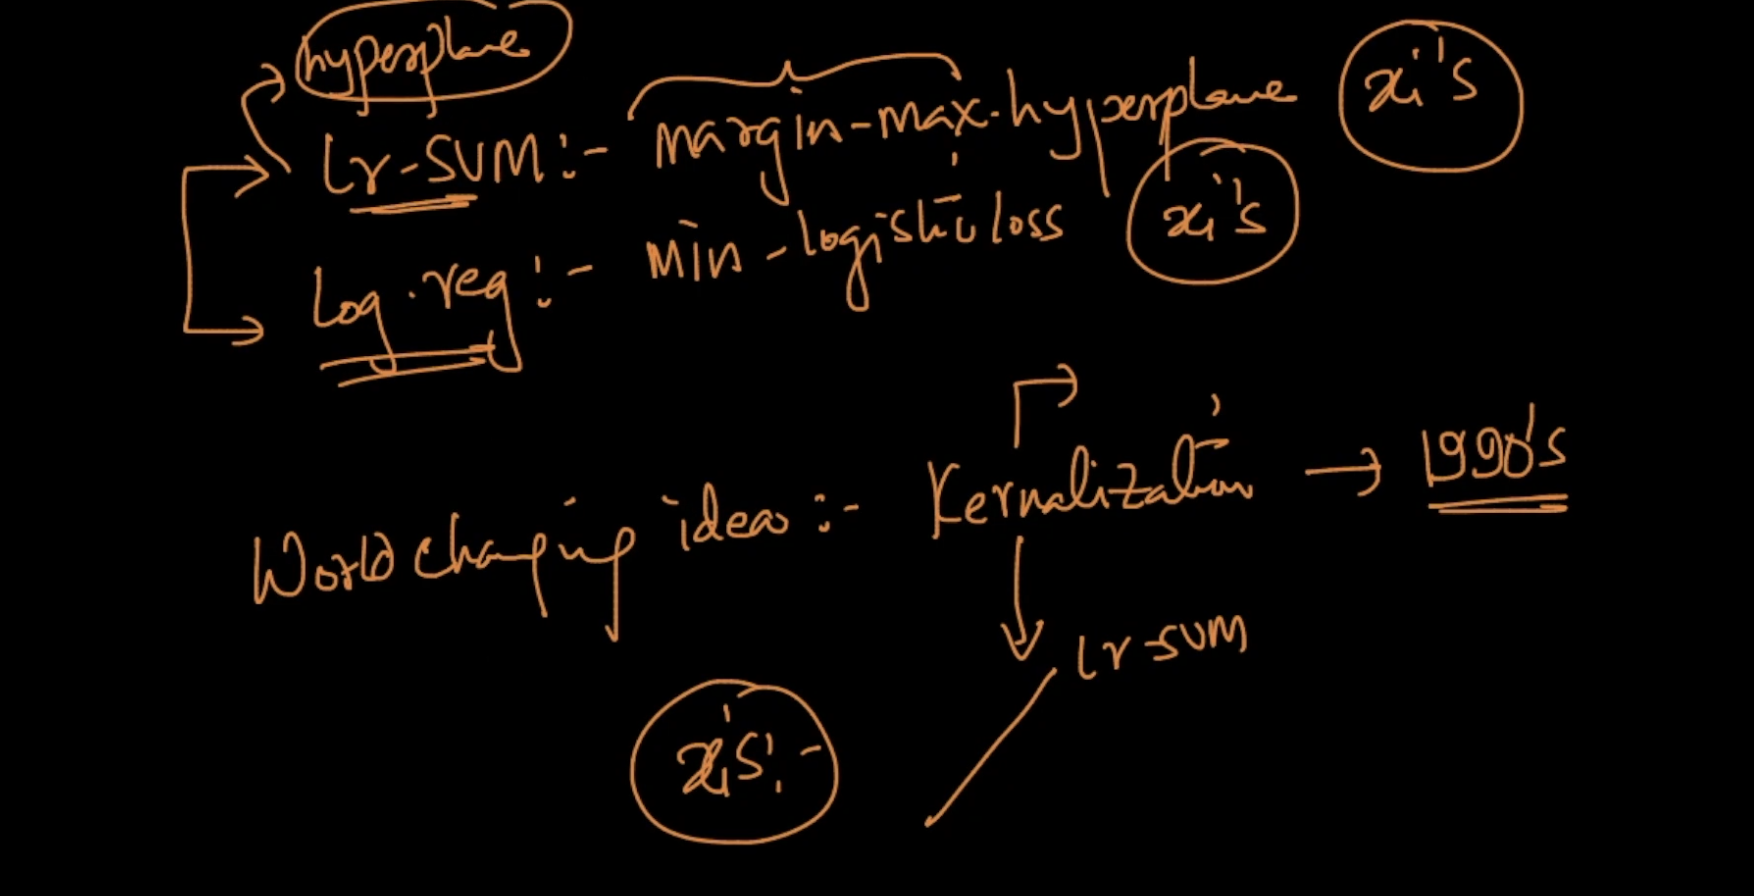 hyperplane
Lr-SVM:- margin-max-hyperplane xi's
Log.reg:- min-logistic loss xi's
World changing idea:- Kernalization → 1990's
lr-SVM
xi's:-